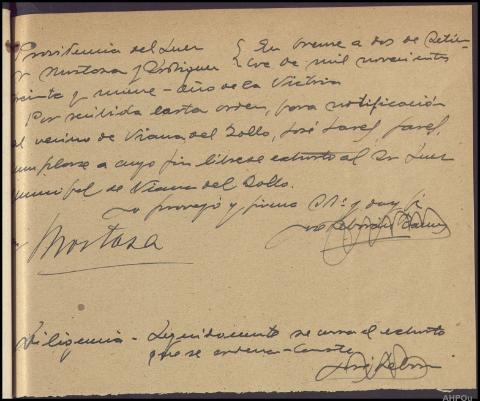 Providencia del Juez } En Orense a dos de Septiem-
Sr Mostaza y Rodriguez } bre de mil novecientos
treinta y nueve - Año de la Victoria
Por recibida carta orden, para notificación
al vecino de Viana del Bollo, José
cumplase a cuyo fin librese exhorto al Sr Juez
municipal de Viana del Bollo.
Lo proveyó y firma S.Sª y doy fé
Mostaza
Diligencia - Seguidamente se cursa el exhorto
que se ordena - Conste
AHPOu